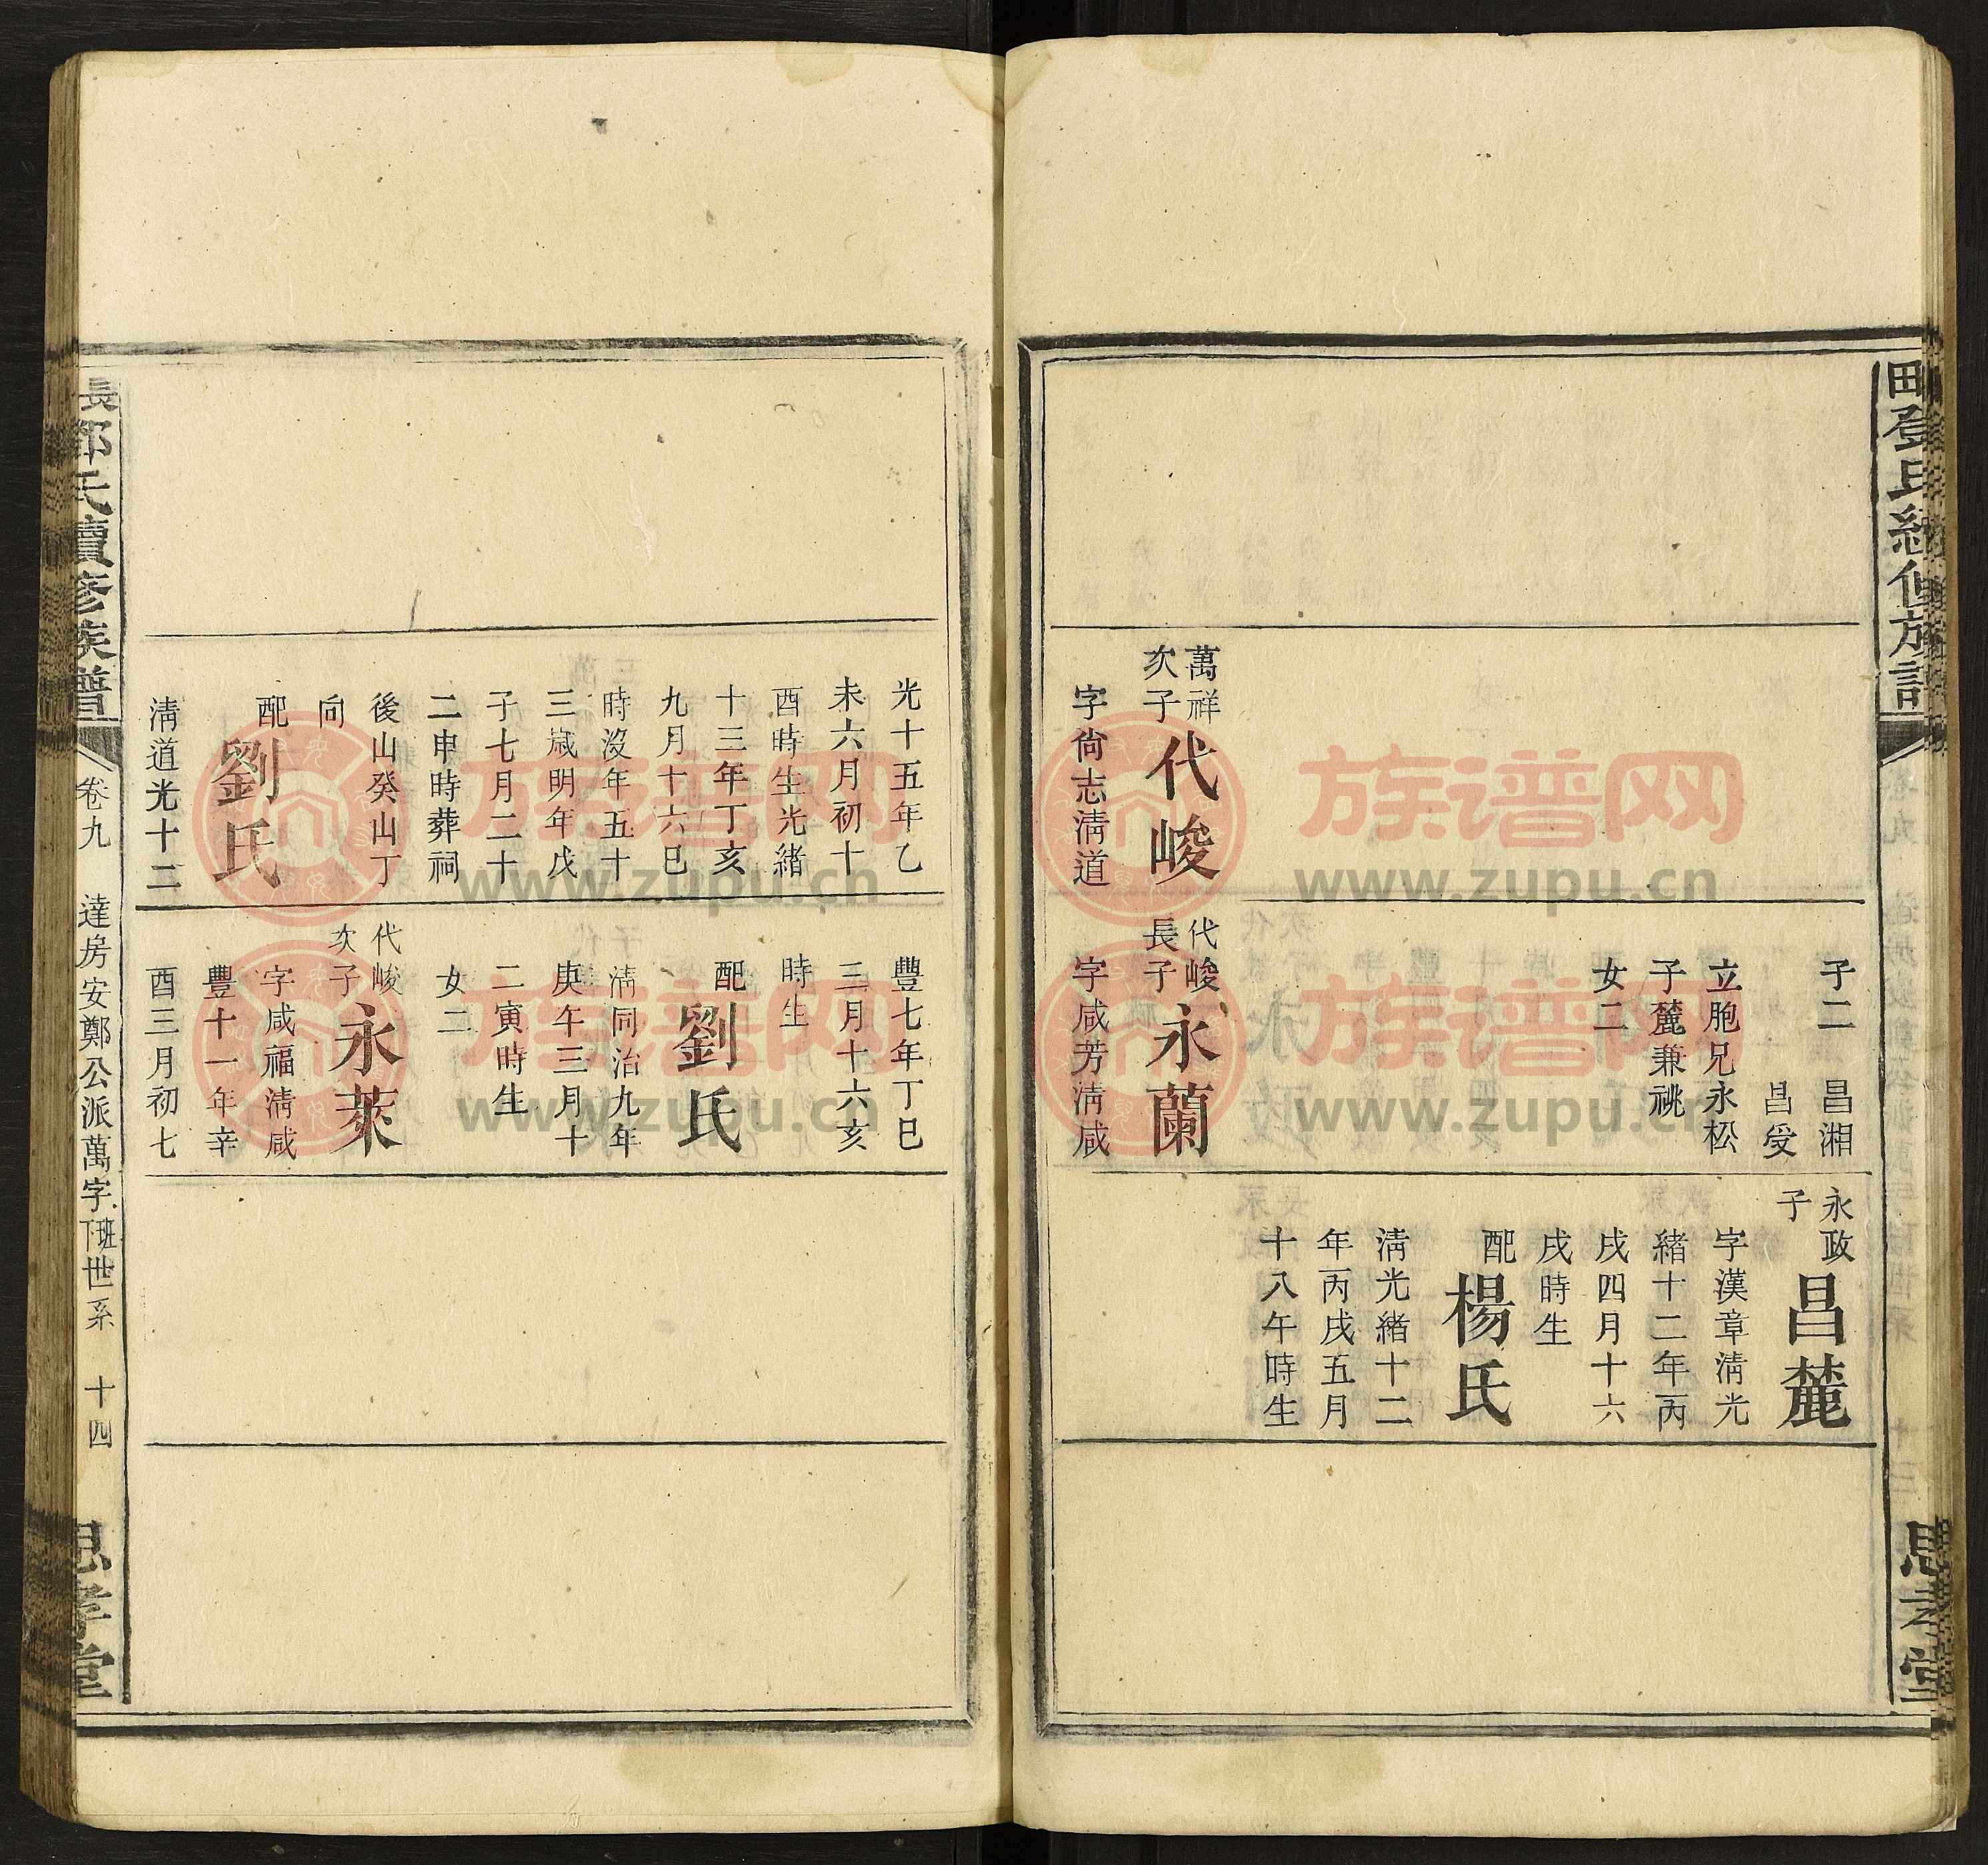 思孝堂
萬祥
次子
代峻
字尙志淸道
子二 昌湘
昌受
立胞兄永松
子麓兼祧
女二
代峻
長子
永蘭
字咸芳淸咸
永政
子
昌麓
字漢章淸光
緖十二年丙
戌四月十六
戌時生
配
楊氏
淸光緖十二
年丙戌五月
十八午時生
光十五年乙
未六月初十
酉時生光緖
十三年丁亥
九月十六巳
時沒年五十
三歲明年戊
子七月二十
二申時葬祠
後山癸山丁
向
配
劉氏
淸道光十二
豐七年丁巳
三月十六亥
時生
配
劉氏
淸同治九年
庚午三月十
二寅時生
女二
代峻
次子
永萊
字咸福淸咸
豐十一年辛
酉三月初七
長
鄧氏續修族譜
卷九
達房安鄭公派萬字班下世系
十四
思孝堂
族谱网
www.zupu.cn
族谱网
www.zupu.cn
族谱网
www.zupu.cn
族谱网
www.zupu.cn